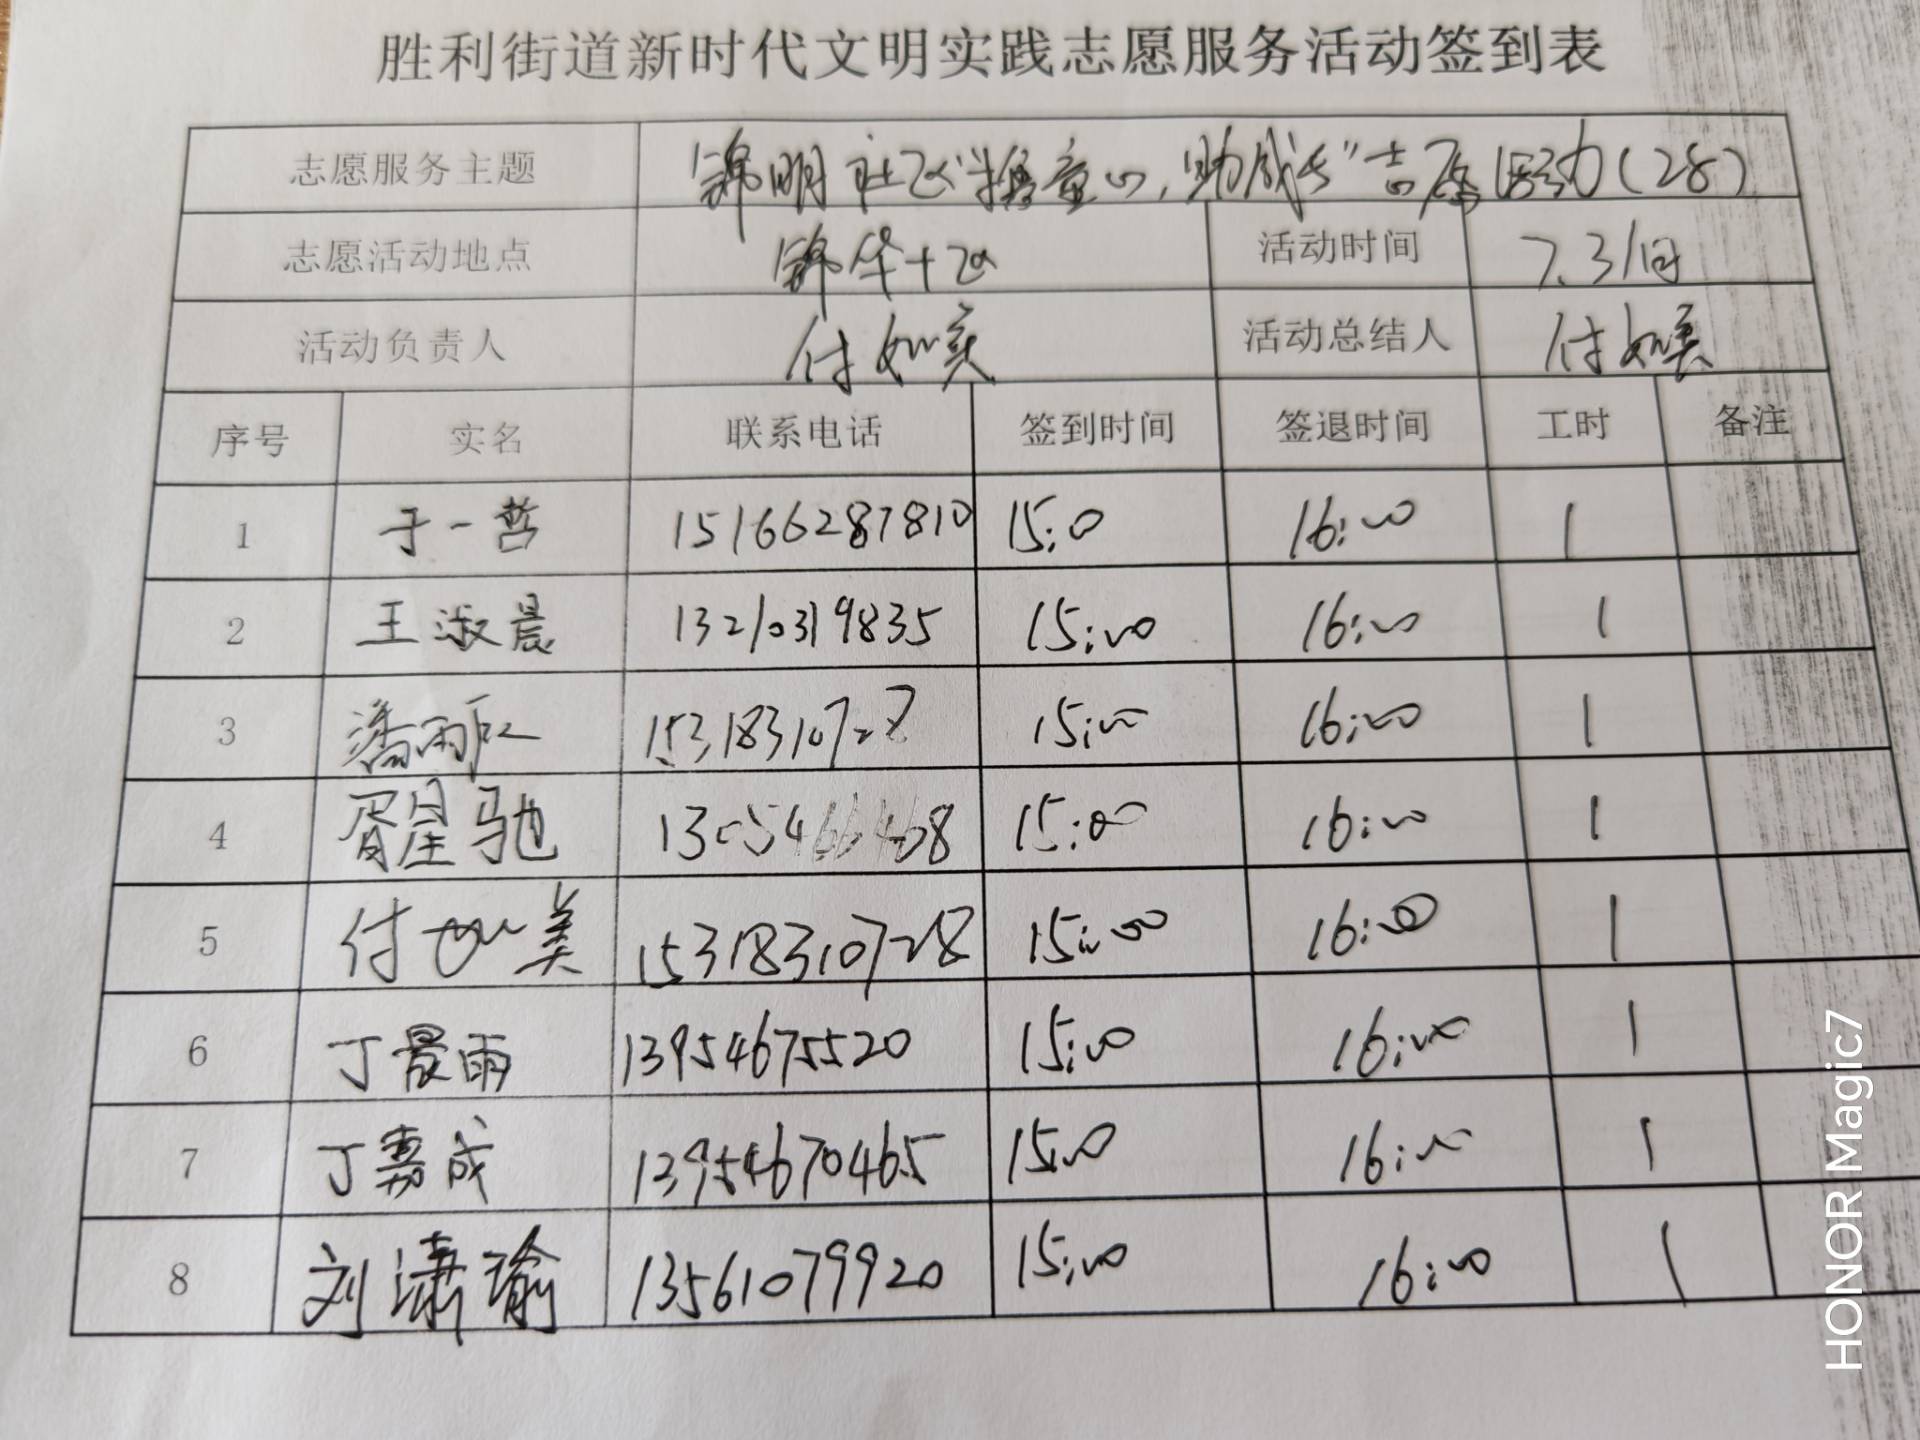 胜利街道新时代文明实践志愿服务活动签到表
志愿服务主题 锦明社区"播童心,助成长"志愿活动(28)
志愿活动地点 锦华十区 活动时间 7.31日
活动负责人 付如美 活动总结人 付如美
序号 实名 联系电话 签到时间 签退时间 工时 备注
1 于一哲 15166287810 15:0 16:00 1
2 王淑晨 13210319835 15:00 16:00 1
3 潘雨 15318310728 15:00 16:00 1
4 胥星驰 13054664608 15:00 16:00 1
5 付如美 15318310728 15:00 16:00 1
6 丁晨雨 13954675520 15:00 16:00 1
7 丁嘉成 13954670465 15:00 16:00 1
8 刘潇瑜 13561079920 15:00 16:00 1
HONOR Magic7